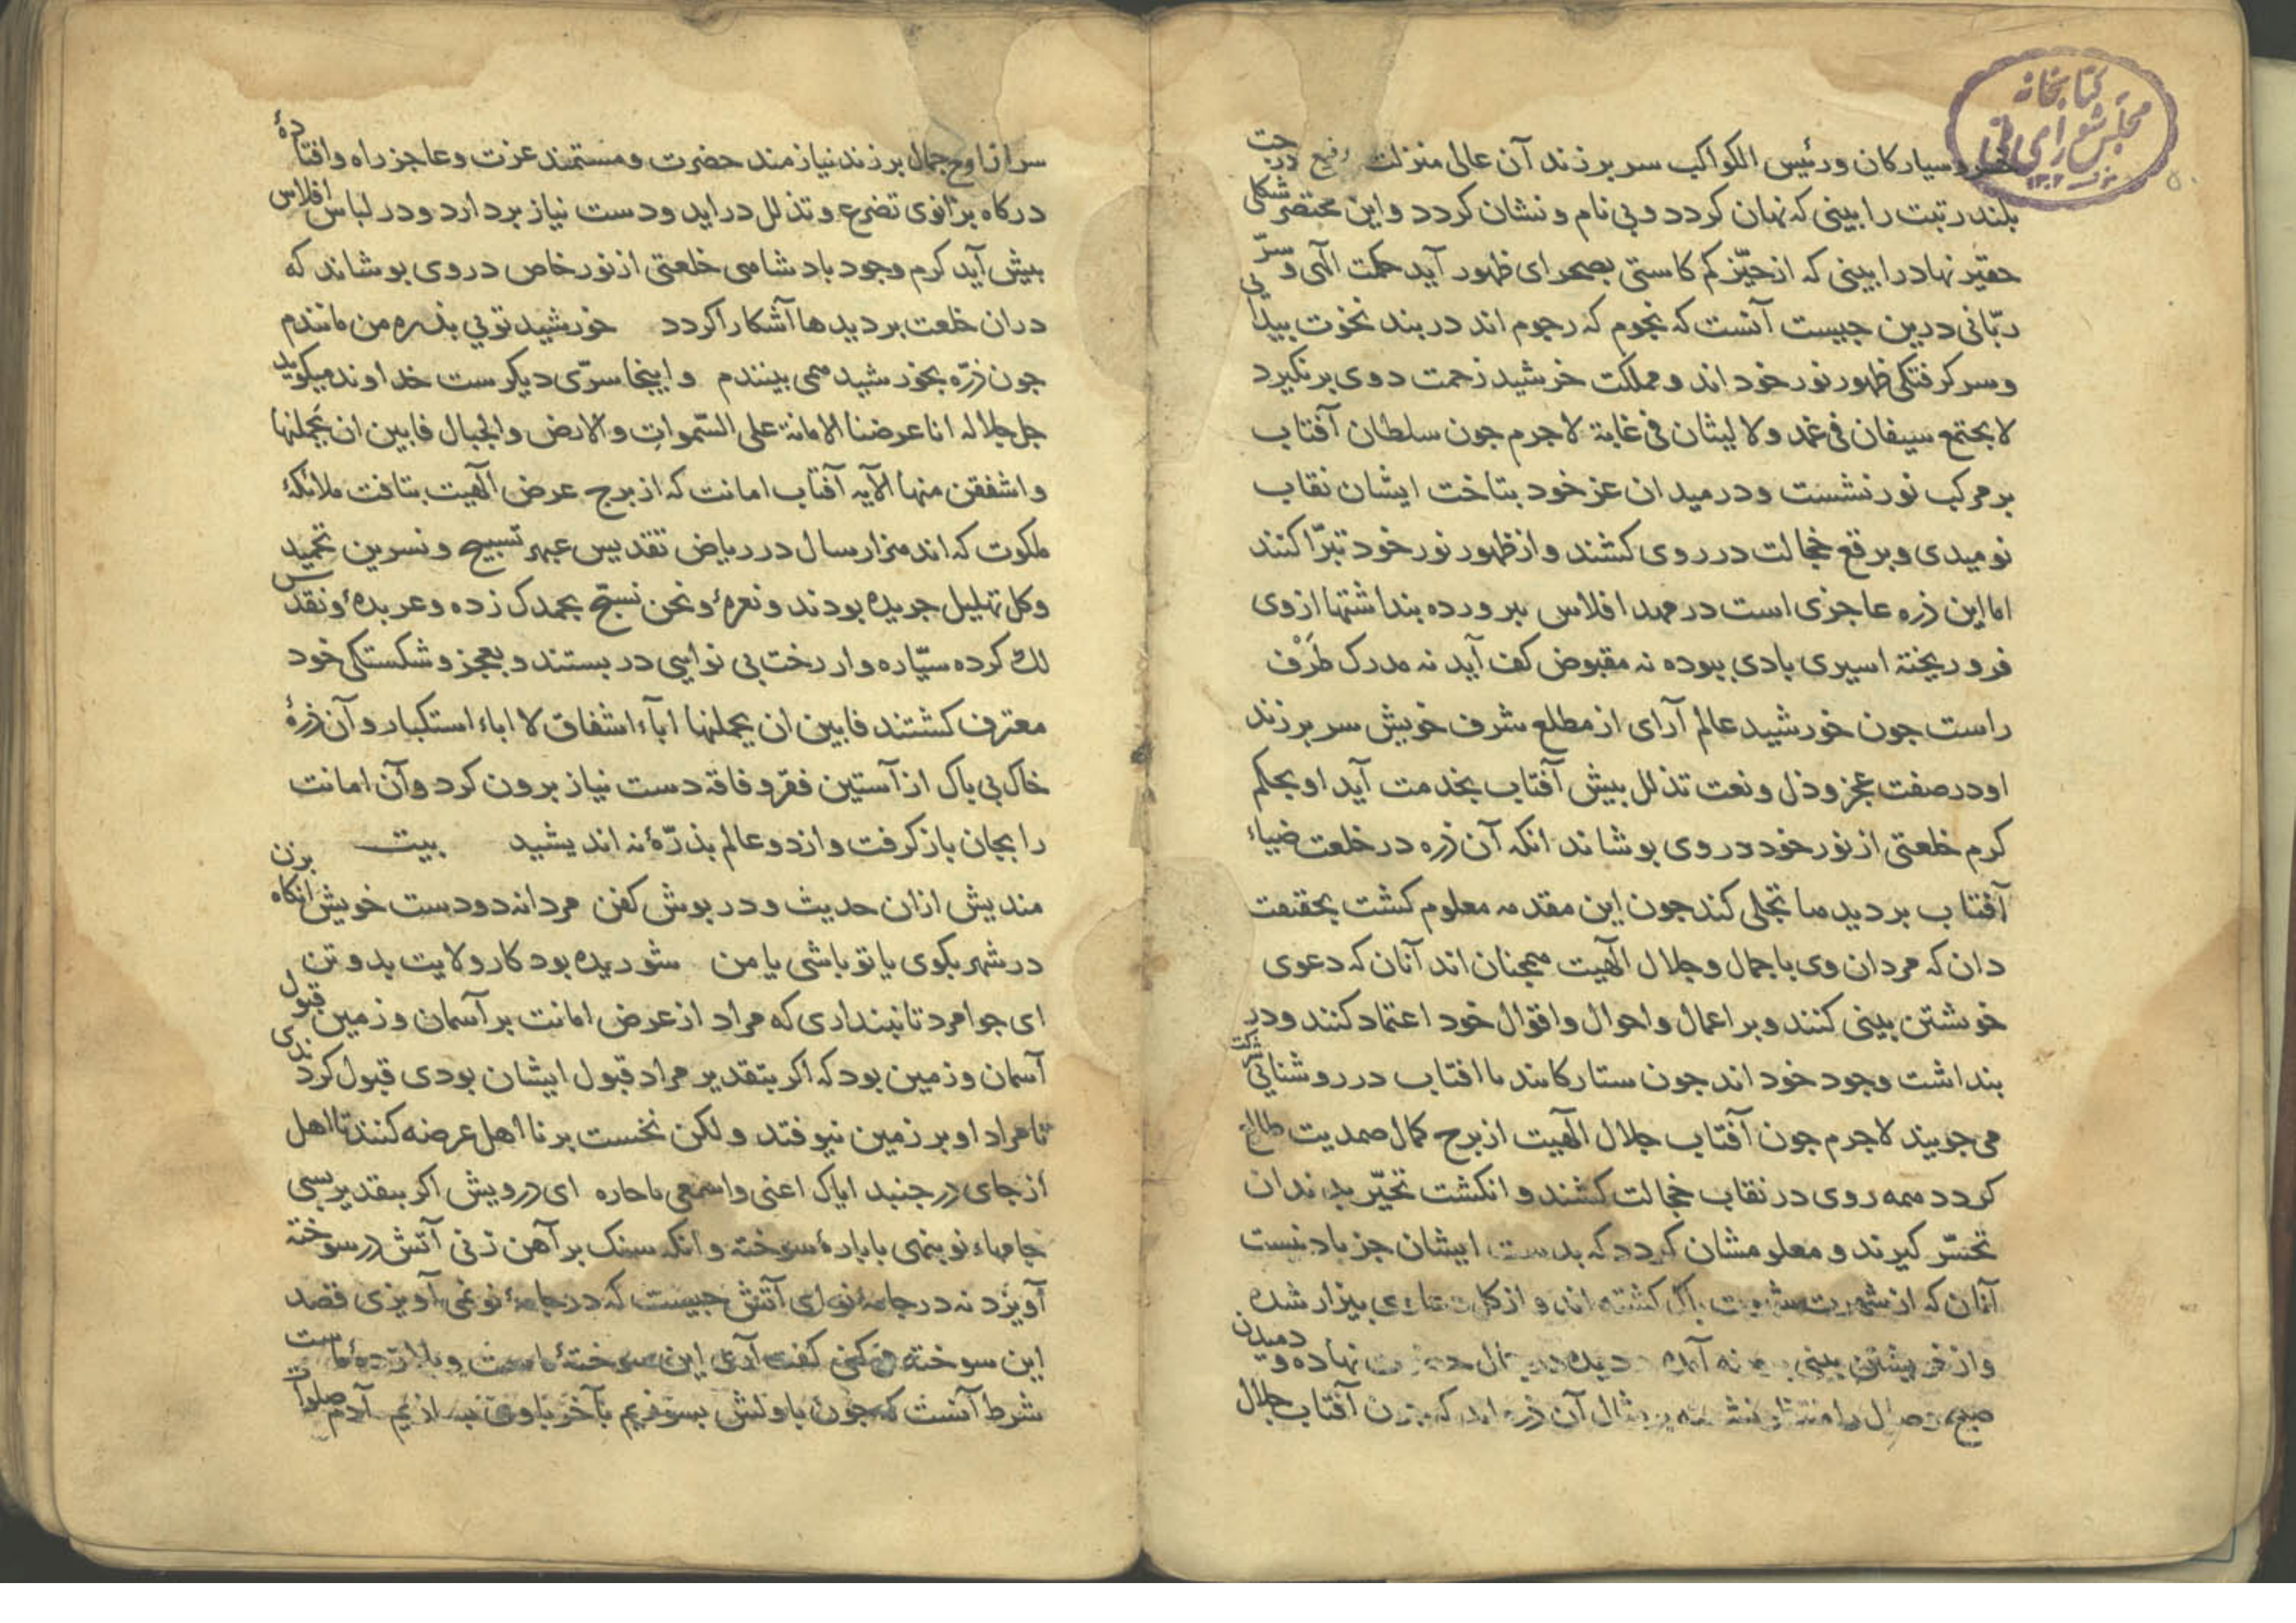 کتابخانه
مجلس شورای ملی
خسرو سیارکان ورئیس الکواکب سر برزند آن عالی منزلت رفیع درجت
بلند رتبت را بینی که نهان کردد و بی نام و نشان کردد واین مختصر شکلی
حقیر نهاد را بینی که از حیّز کم کاستی بصحرای ظهور آید حکمت الهی وسرّ
ربّانی درین جیست آنست که نجوم که رجوم اند در بند نخوت بیدایی
وسر کرفتکی ظهور نور خود اند و مملکت خرشید زحمت دوی برنکیرد
لا یجتمع سیفان فی غمد ولا لیثان فی غابة لاجرم جون سلطان آفتاب
بر مرکب نور نشست ودر میدان عز خود بتاخت ایشان نقاب
نومیدی وبرقع خجالت در روی کشند واز ظهور نور خود تبرّا کنند
اما این ذره عاجزی است در مهد افلاس ببرورده بنداشتها ازوی
فرو ریخته اسیری بادی بیوده نه مقبوض کف آید نه مدرک طَرْف
راست جون خورشید عالم آرای از مطلع شرف خویش سر برزند
او در صفت عجز وذل ونعت تذلل بیش آفتاب بخدمت آید او بحکم
کرم خلعتی از نور خود در وی بوشاند انکه آن ذره در خلعت ضیاء
آفتاب بر دیدها تجلی کند جون این مقدمه معلوم کشت بحقیقت
دان که مردان وی با جمال وجلال الٓهیت همجنان اند آنان که دعوی
خویشتن بینی کنند وبر اعمال واحوال واقوال خود اعتماد کنند ودر
بنداشت وجود خود اند جون ستارکانند با افتاب در روشنایی شرکت
می جویند لاجرم جون آفتاب جلال الٓهیت از برج کمال صمدیت طالع
کردد همه روی در نقاب خجالت کشند و انکشت تحیّر بدندان
تحسّر کیرند و معلومشان کردد که بدست ایشان جز باد نیست
آنان که از شهرت باک کشته اند و از کل بیزار شده
واز خویشتن بینی آمده دیده در جمال نهاده و دمیدن
صبح وصال را منتظر نشسته بر مثال آن ذره اند که جون آفتاب جلال
سر از اوج جمال برزند نیازمند حضرت ومستمند عزت وعاجز راه وافتادهٔ
درکاه بزانوی تضرع وتذلل در اید ودست نیاز بردارد ودر لباس افلاس
بیش آید کرم وجود بادشاهی خلعتی از نور خاص در وی بوشاند که
دران خلعت بر دیدها آشکارا کردد خورشید توئی بذره من مانندم
جون ذرّه بخورشید همی بینندم واینجا سرّی دیکرست خداوند میکوید
جل جلاله انا عرضنا الامانة علی السّموات والارض والجبال فابین ان یَحملنها
واشفقن منها الآیه آفتاب امانت که از برج عرض الٓهیت بتافت ملائکهٔ
ملکوت که اند هزار سال در ریاض تقدیس عبهر تسبیح ونسرین تحمید
وکل تهلیل جریده بودند ونعرهٔ ونحن نسبّح بحمدک زده وعربدهٔ ونقدس
لک کرده ستّاره وار رخت بی نوایی در بستند وبعجز وشکستکی خود
معترف کشتند فابین ان یحملنها اباء اشفاق لا اباء استکبار وآن ذرهٔ
خاک بی باک از آستین فقر وفاقه دست نیاز برون کرد وآن امانت
را بجان باز کرفت واز دو عالم بذرّهٔ نه اندیشید بیت
مندیش ازان حدیث ودر بوش کفن مردانه دو دست خویش انکاه بزن
در شهر بکوی یا تو باشی یا من شوریده بود کار ولایت بدو تن
ای جوامرد تا نبنداری که مراد از عرض امانت بر آسمان وزمین قبول
آسمان وزمین بود که اکر بتقدیر مراد قبول ایشان بودی قبول کردندی
تا مراد او بر زمین نیوفتد ولکن نخست بر نا اهل عرضه کنند تا اهل
از جای در جنبد ایاک اعنی واسمعی یا جاره ای درویش اکر بتقدیر بسی
جامهاء نو بنهی با بارهٔ سوخته وانکه سنک بر آهن زنی آتش در سوخته
آویزد نه در جامهٔ نو ای آتش جیست که در جامهٔ نو نمی آویزی قصد
این سوخته می کنی کفت آری این سوختهٔ ماست وبلا زدهٔ ماست
شرط آنست که جون باولش بسوزیم بآخر با وی آدم صلوات